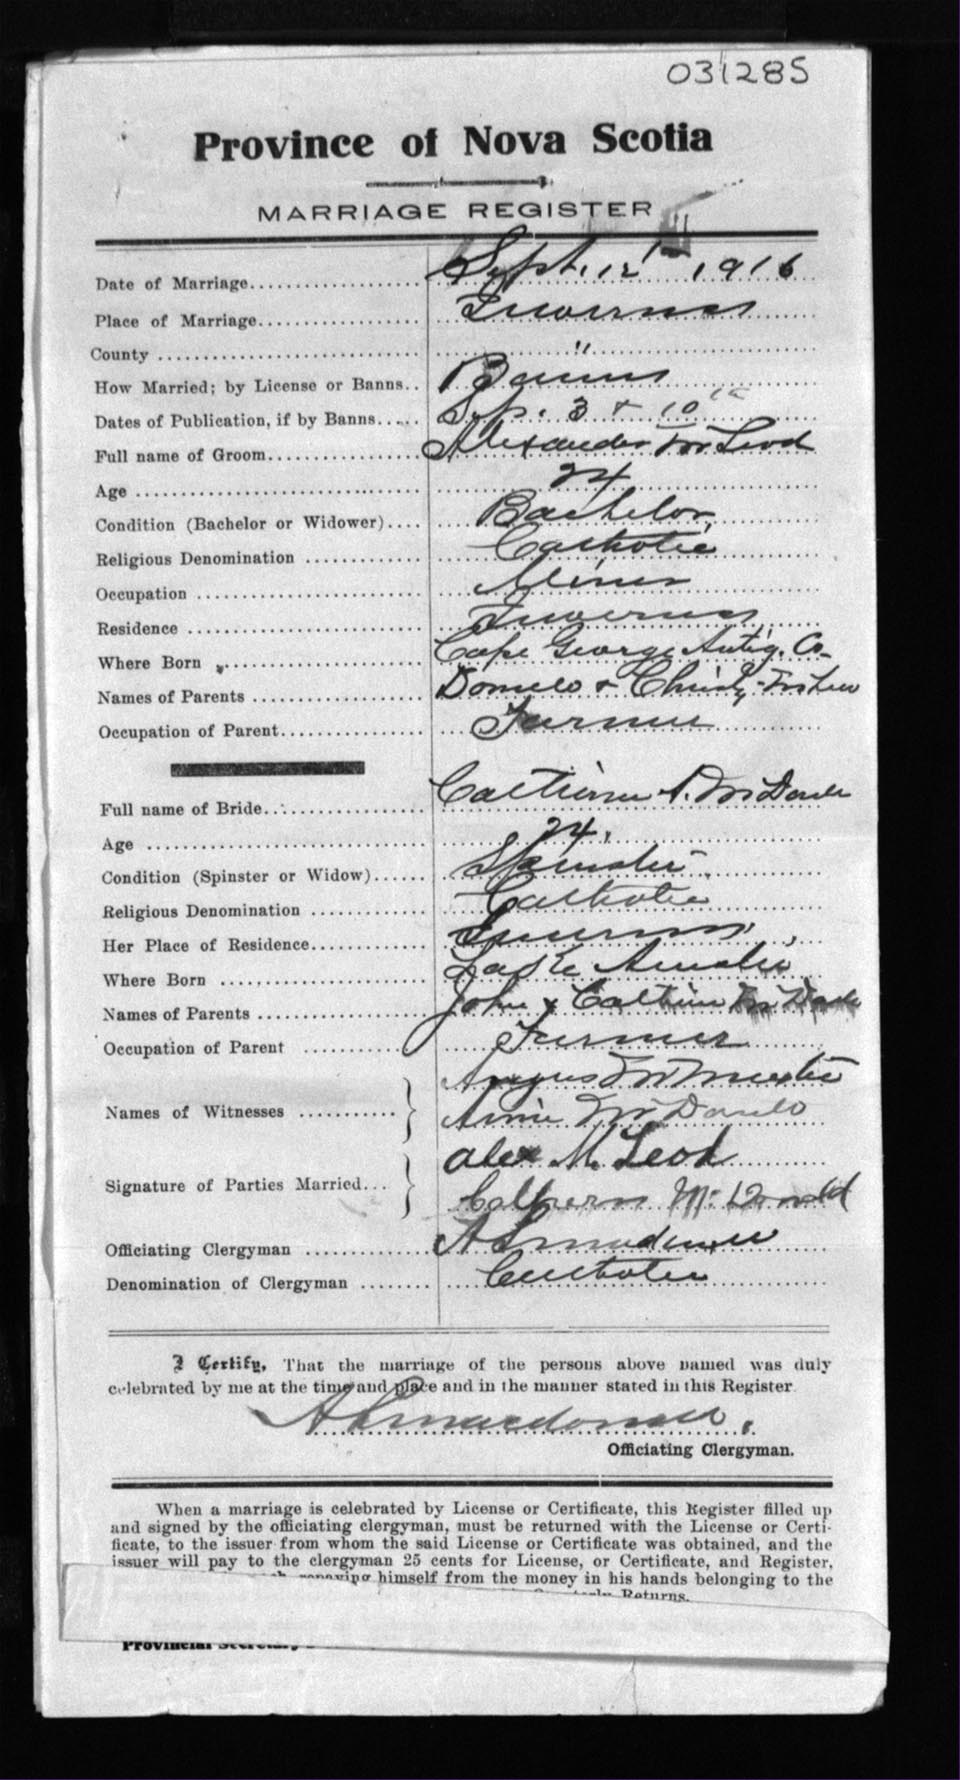 031285
Province of Nova Scotia
MARRIAGE REGISTER
Date of Marriage Sept. 12 1916
Place of Marriage Inverness
County "
How Married; by License or Banns Banns
Dates of Publication, if by Banns Sep. 3 + 10
Full name of Groom Alexander McLeod
Age 24
Condition (Bachelor or Widower) Bachelor
Religious Denomination Catholic
Occupation Miner
Residence Inverness
Where Born Cape George Antig. Co
Names of Parents + Christy
Occupation of Parent Farmer
Full name of Bride
Age 24.
Condition (Spinster or Widow) Spinster
Religious Denomination Catholic
Her Place of Residence Inverness
Where Born Lake Ainslie
Names of Parents John +
Occupation of Parent Farmer
Names of Witnesses Angus
Annie
Signature of Parties Married Alex McLeod
McDonald
Officiating Clergyman
Denomination of Clergyman Catholic
I Certify, That the marriage of the persons above named was duly
celebrated by me at the time and place and in the manner stated in this Register
Officiating Clergyman.
When a marriage is celebrated by License or Certificate, this Register filled up
and signed by the officiating clergyman, must be returned with the License or Certi-
ficate, to the issuer from whom the said License or Certificate was obtained, and the
issuer will pay to the clergyman 25 cents for License, or Certificate, and Register,
himself from the money in his hands belonging to the
Returns.
Provincial